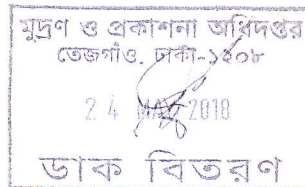 মুদ্রণ ও প্রকাশনা অধিদপ্তর
তেজগাঁও, ঢাকা-১২০৮
24 MAY 2018
ডাক বিতরণ